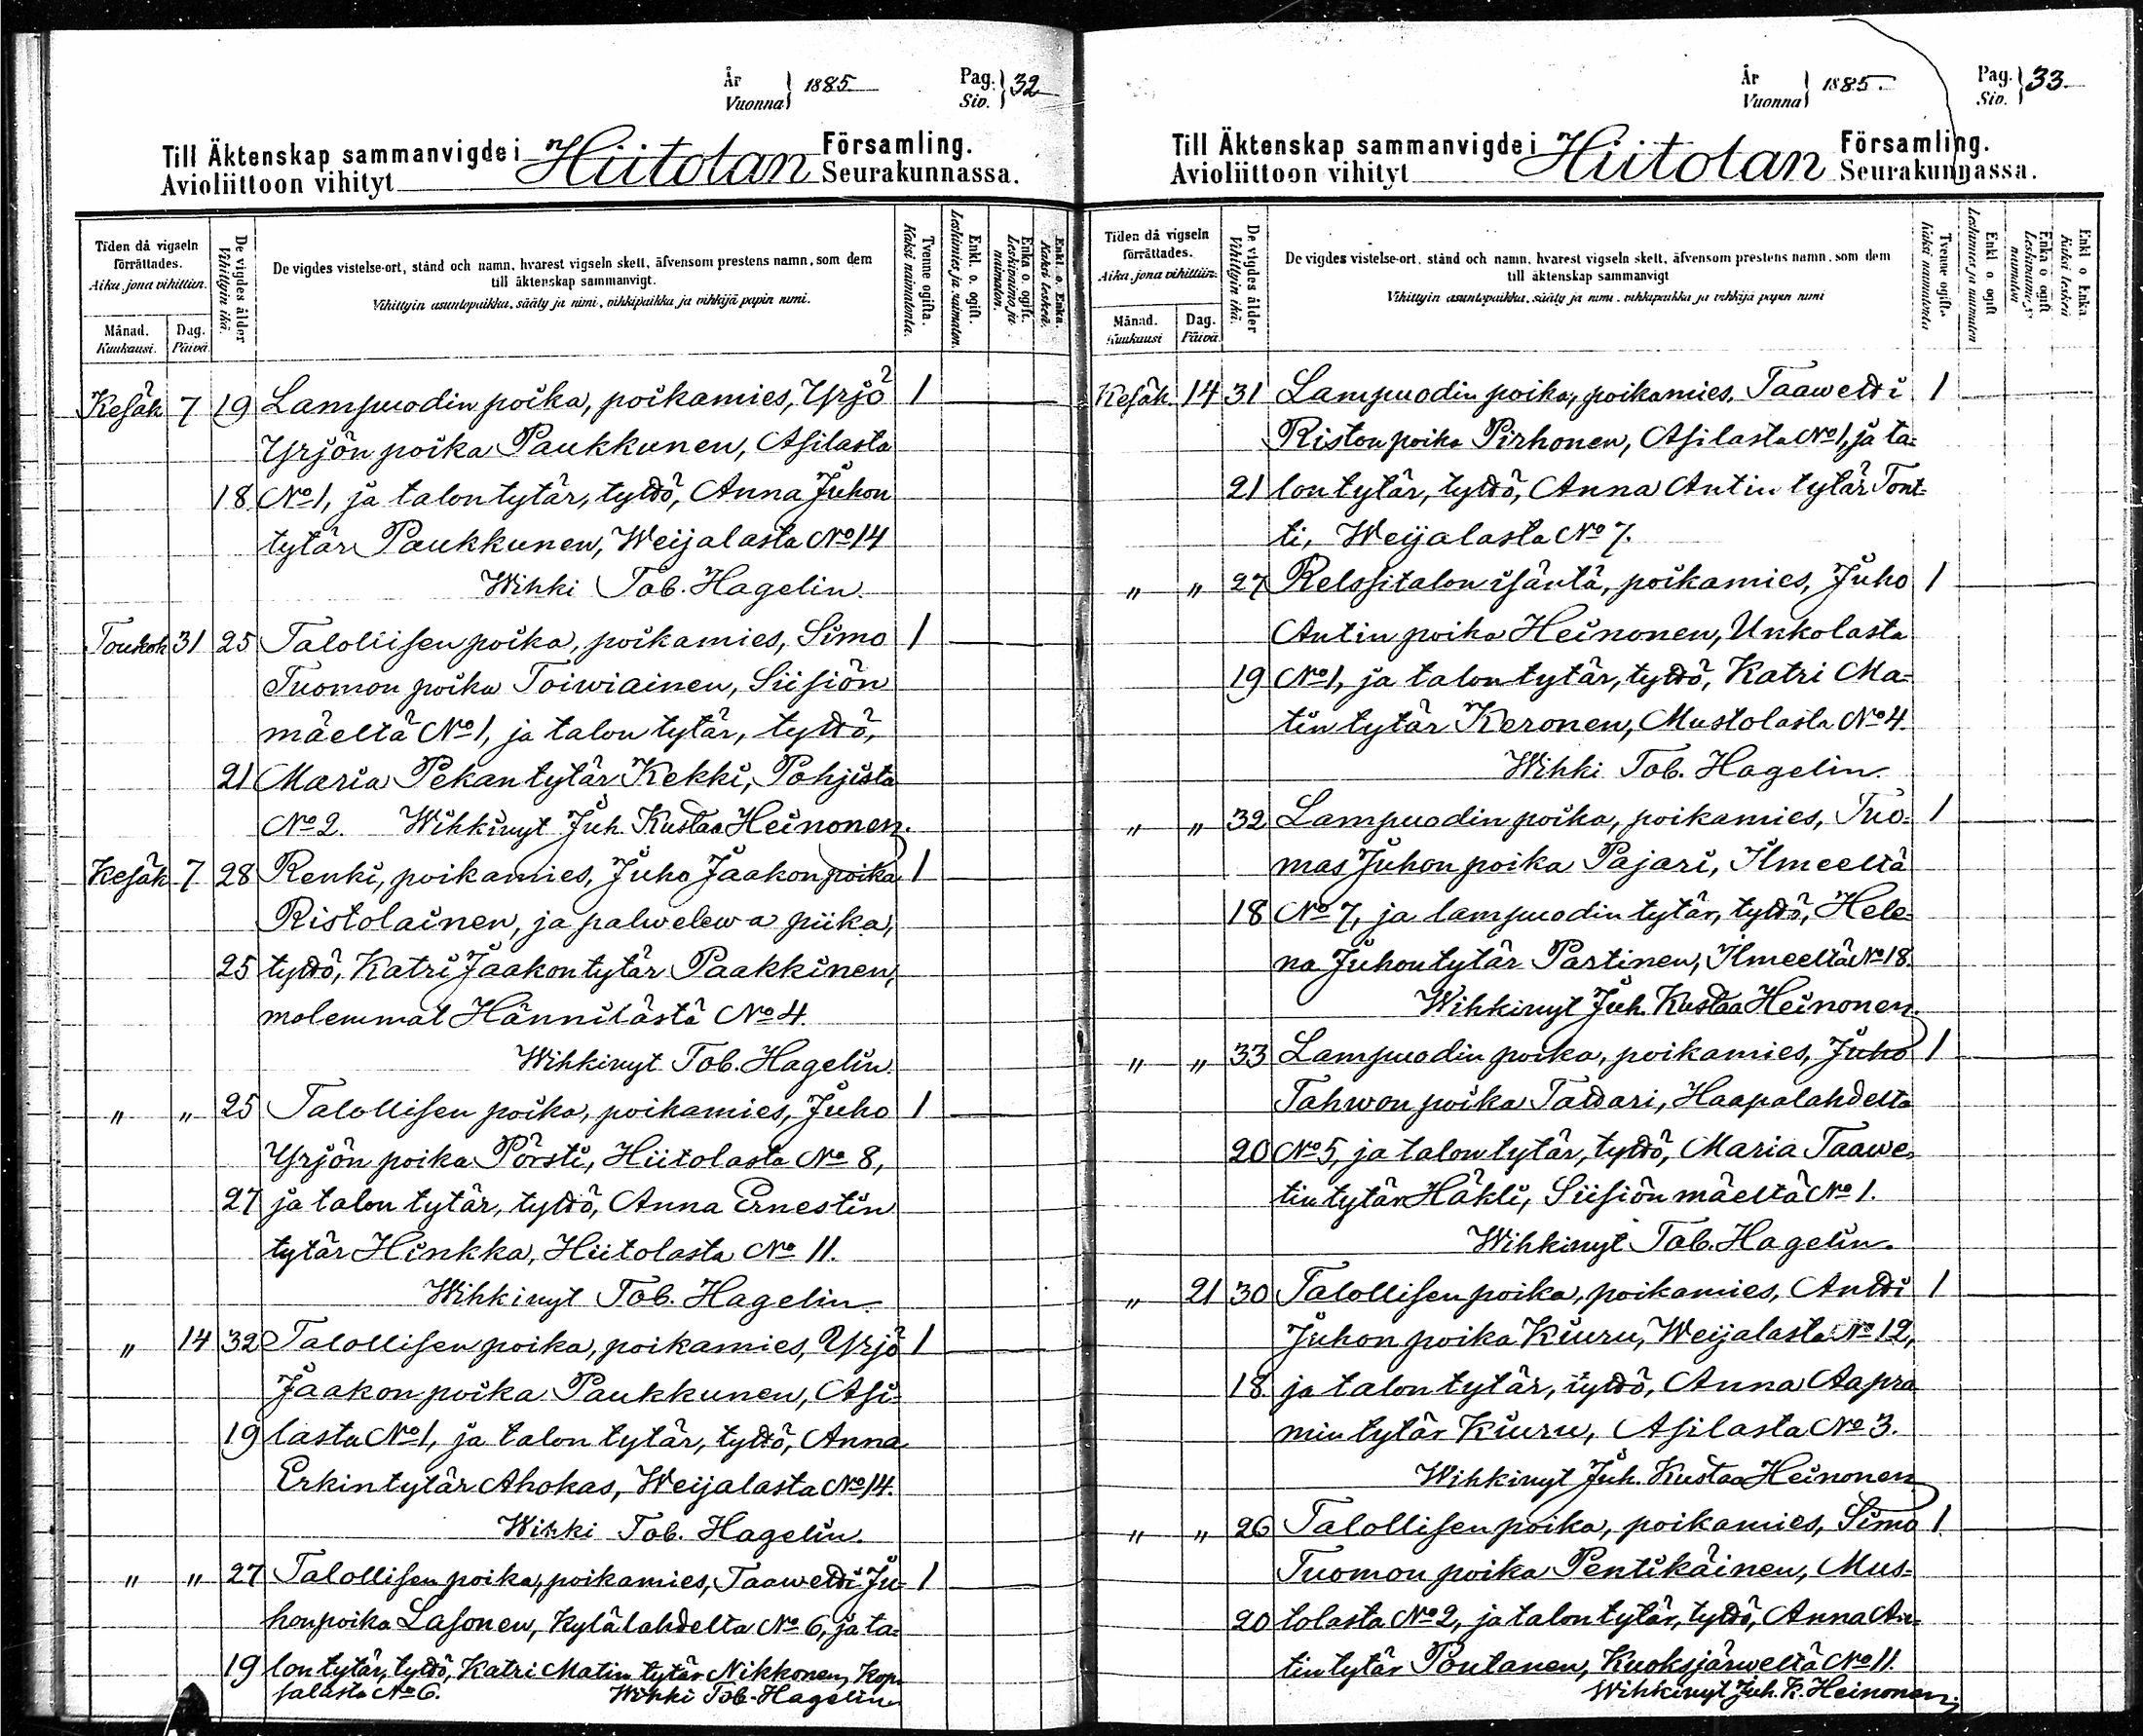 År
Vuonna } 1885.
Pag.
Siv. } 32
Till Äktenskap sammanvigde i Hiitolan Församling.
Avioliittoon vihityt Seurakunnassa.
Tiden då vigseln förrättades.
Aika, jona vihittiin.
Månad.
Kuukausi.
Dag.
Päivä.
De vigdes ålder
Vihittyin ikä.
De vigdes vistelse-ort, stånd och namn, hvarest vigseln skett, äfvensom prestens namn, som dem
till äktenskap sammanvigt.
Vihittyin asuntopaikka, sääty ja nimi, vihkipaikka ja vihkijä papin nimi.
Tvenne ogifta.
Kaksi naimatonta.
Enkl. o. ogift.
Leskimies ja naimaton.
Enka o. ogift.
Leskivaimo ja naimaton.
Enkl. o. Enka.
Kaksi leskeä.
Kesäk 7 19 Lampuodin poika, poikamies, Yrjö 1
Yrjön poika Paukkunen, Asilasta
18 No 1, ja talon tytär, tyttö, Anna Juhon
tytär Paukkunen, Weijalasta No 14
Wihki Tob. Hagelin.
Toukok 31 25 Talollisen poika, poikamies, Simo 1
Tuomon poika Toiwiainen, Siisiön
mäeltä No 1, ja talon tytär, tyttö,
21 Maria Pekan tytär Kekki, Pohjista
No 2. Wihkinyt Juh. Kustaa Heinonen.
Kesäk 7 28 Renki, poikamies, Juho Jaakon poika 1
Ristolainen, ja palwelewa piika,
25 tyttö, Katri Jaakon tytär Paakkinen,
molemmat Hännilästä No 4.
Wihkinyt Tob. Hagelin.
" " 25 Talollisen poika, poikamies, Juho 1
Yrjön poika Pörsti, Hiitolasta No 8,
27 ja talon tytär, tyttö, Anna Ernestin
tytär Hinkka, Hiitolasta No 11.
Wihkinyt Tob. Hagelin.
" 14 32 Talollisen poika, poikamies, Yrjö 1
Jaakon poika Paukkunen, Asi-
19 lasta No 1, ja talon tytär, tyttö, Anna
Erkin tytär Ahokas, Weijalasta No 14.
Wihki Tob. Hagelin.
" " 27 Talollisen poika, poikamies, Taawetti Ju- 1
hon poika Lasonen, Kylälahdelta No 6, ja ta-
19 lon tytär, tyttö, Katri Matin tytär Nikkonen, Kop-
salasta No 6. Wihki Tob. Hagelin
År
Vuonna } 1885.
Pag.
Siv. } 33
Till Äktenskap sammanvigde i Hiitolan Församling.
Avioliittoon vihityt Seurakunnassa.
Tiden då vigseln förrättades.
Aika, jona vihittiin.
Månad.
Kuukausi
Dag.
Päivä.
De vigdes ålder
Vihittyin ikä.
De vigdes vistelse-ort, stånd och namn, hvarest vigseln skett, äfvensom prestens namn, som dem
till äktenskap sammanvigt
Vihittyin asuntopaikka, sääty ja nimi, vihkipaikka ja vihkijä papin nimi
Tvenne ogifta
Kaksi naimatonta
Enkl. o. ogift
Leskimies ja naimaton
Enka o ogift
Leskivaimo ja naimaton
Enkl o Enka
Kaksi leskeä
Kesäk. 14 31 Lampuodin poika, poikamies, Taawetti 1
Riston poika Pirhonen, Asilasta No 1, ja ta-
21 lon tytär, tyttö, Anna Antin tytär Tont-
ti, Weijalasta No 7.
" " 27 Relssitalon isäntä, poikamies, Juho 1
Antin poika Heinonen, Unkolasta
19 No 1, ja talon tytär, tyttö, Katri Ma-
tin tytär Keronen, Mustolasta No 4.
Wihki Tob. Hagelin.
" " 32 Lampuodin poika, poikamies, Tuo- 1
mas Juhon poika Pajari, Ilmeeltä
18 No 7, ja lampuodin tytär, tyttö, Hele-
na Juhon tytär Partinen, Ilmeeltä No 18.
Wihkinyt Juh. Kustaa Heinonen.
" " 33 Lampuodin poika, poikamies, Juho 1
Tahwon poika Tattari, Haapalahdelta
20 No 5, ja talon tytär, tyttö, Maria Taawe-
tin tytär Häkli, Siisiön mäeltä No 1.
Wihkinyt Tob. Hagelin.
" 21 30 Talollisen poika, poikamies, Antti 1
Juhon poika Kiuru, Weijalasta No 12,
18 ja talon tytär, tyttö, Anna Aapra
min tytär Kiuru, Asilasta No 3.
Wihkinyt Juh. Kustaa Heinonen
" " 26 Talollisen poika, poikamies, Simo 1
Tuomon poika Pentikäinen, Mus-
20 tolasta No 2, ja talon tytär, tyttö, Anna An-
tin tytär Poutanen, Kuoksjärweltä No 11.
Wihkinyt Juh. K. Heinonen.